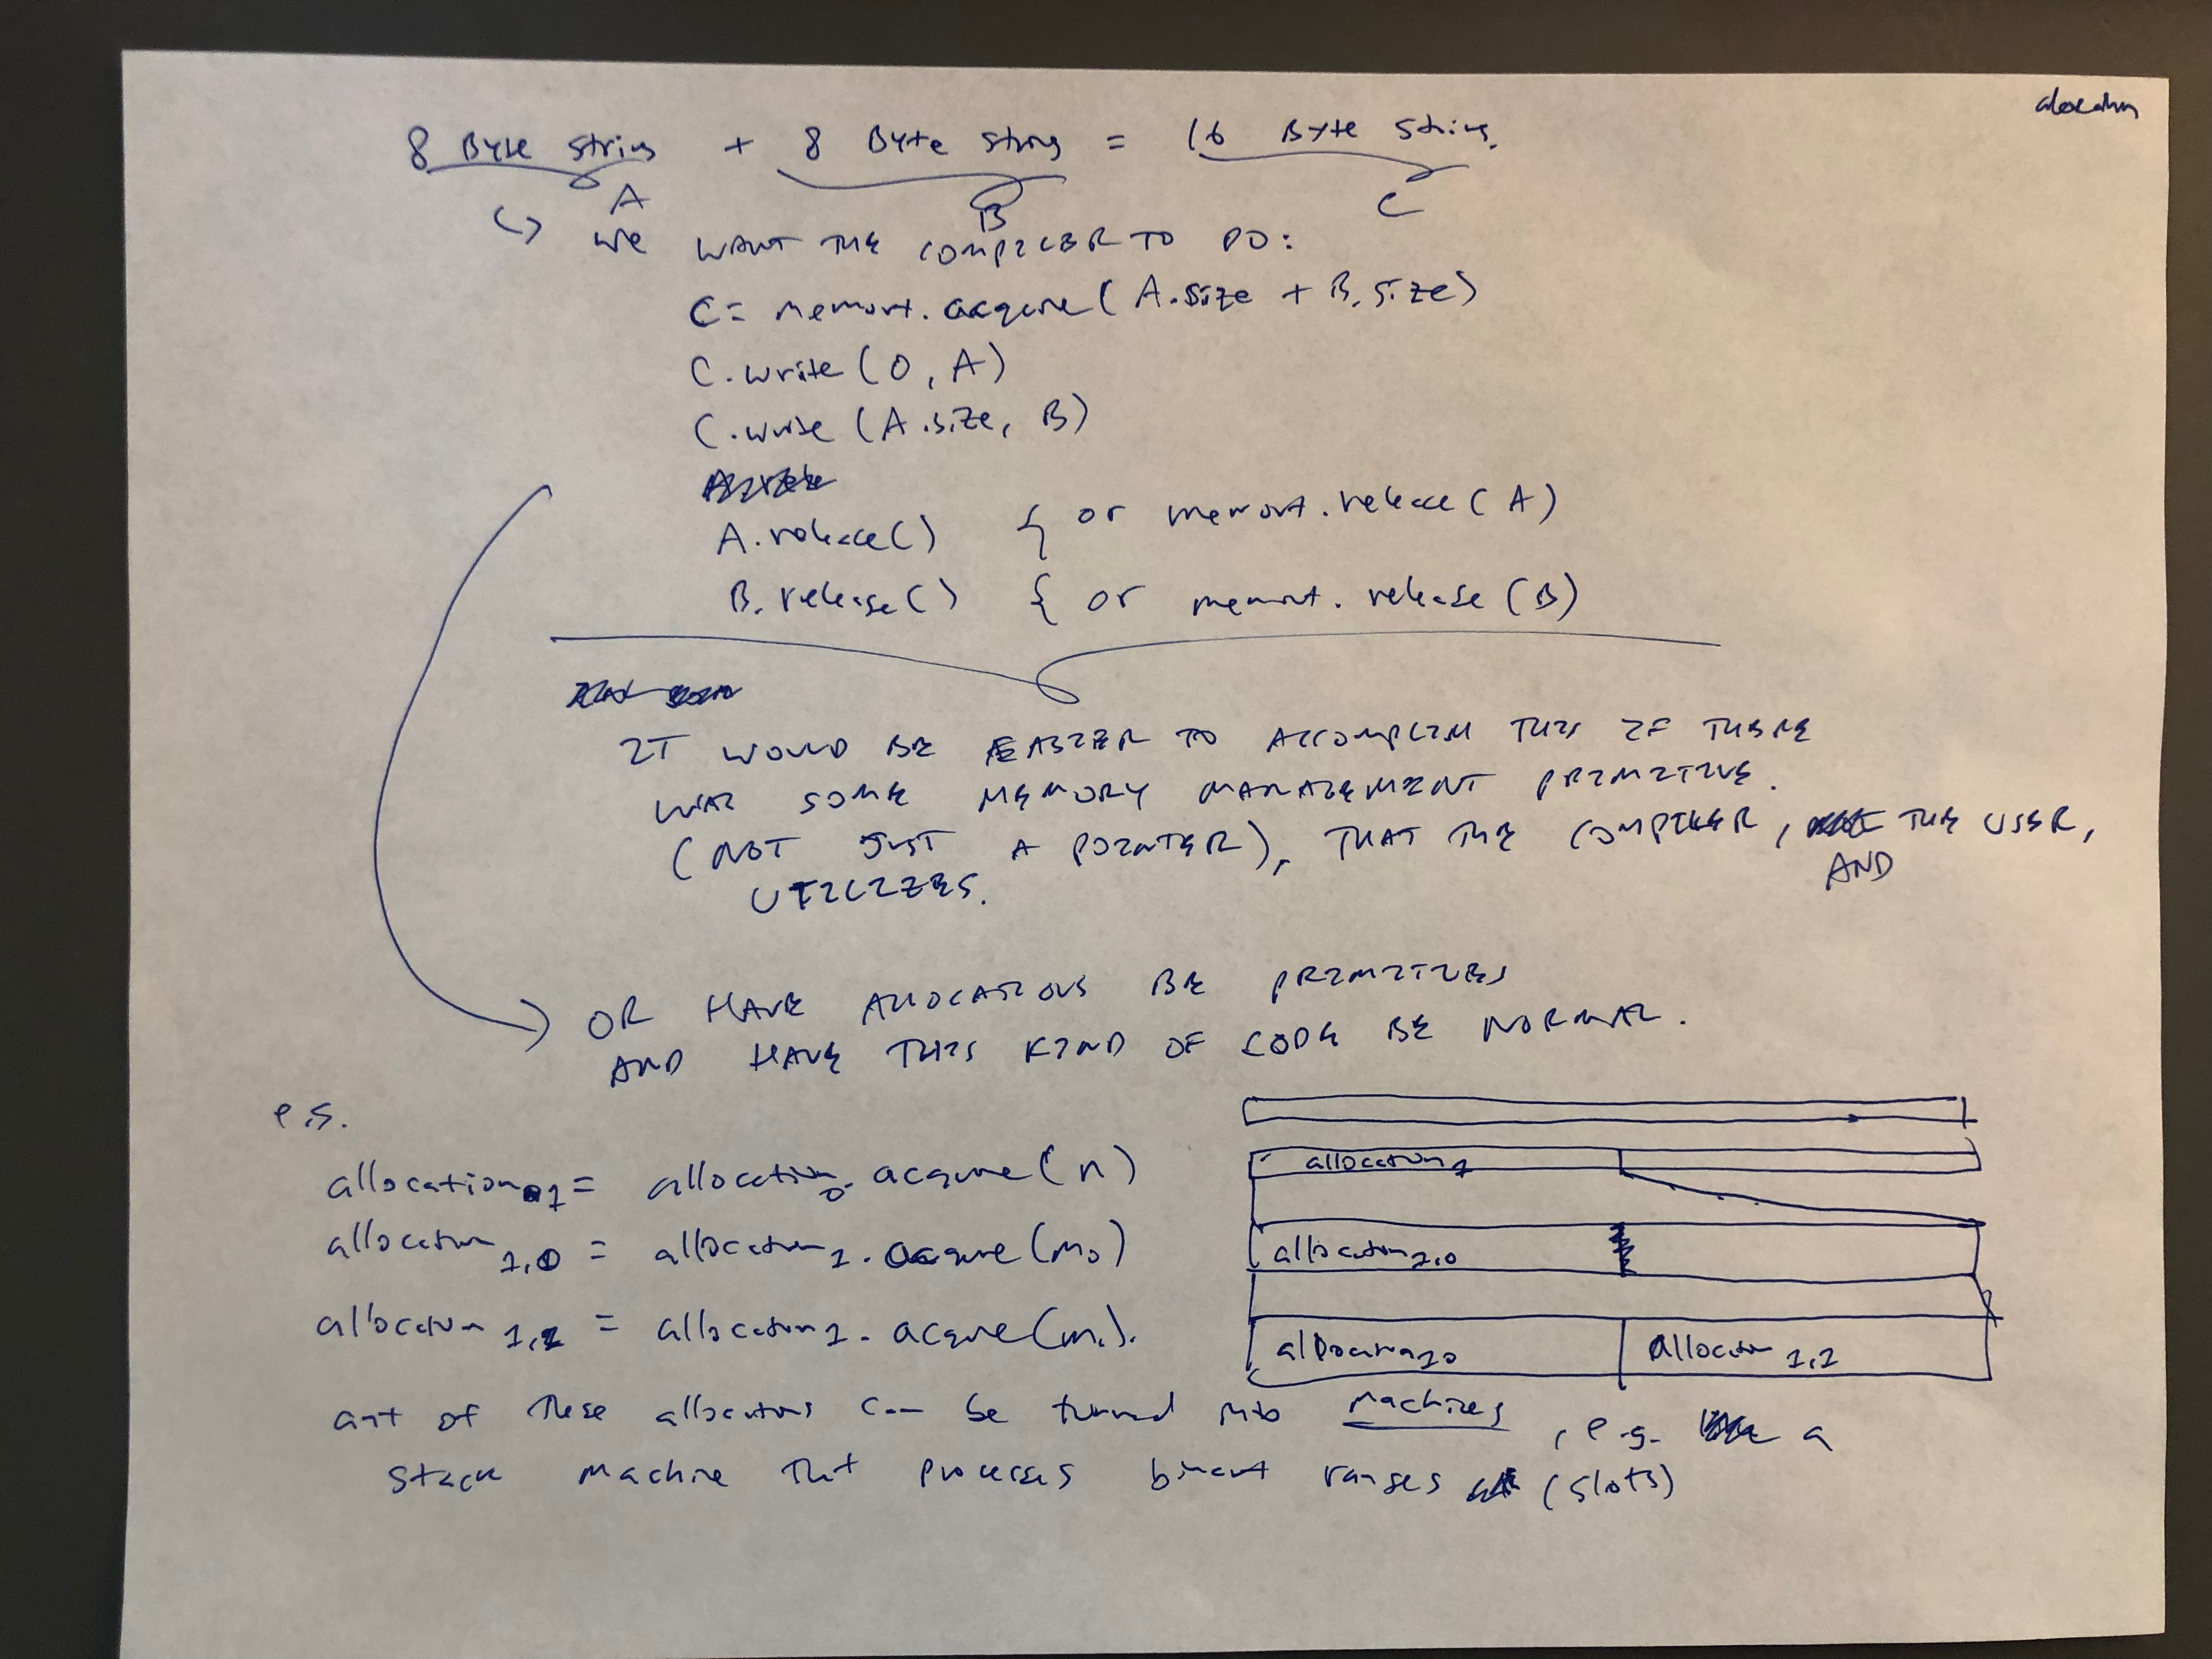 allocation
8 Byte string + 8 Byte string = 16 Byte string.
A B C
WE WANT THE COMPILER TO DO:
C = memory.acquire(A.size + B.size)
C.write(0, A)
C.write(A.size, B)
A.release() { or memory.release(A)
B.release() { or memory.release(B)
IT WOULD BE EASIER TO ACCOMPLISH THIS IF THERE
WAS SOME MEMORY MANAGEMENT PRIMITIVE.
(NOT JUST A POINTER), THAT THE COMPILER, THE USER,
AND
UTILIZES.
OR HAVE ALLOCATIONS BE PRIMITIVES
AND HAVE THIS KIND OF CODE BE NORMAL.
e.g.
allocation1 = allocation0.acquire(n)
allocation1,0 = allocation1.acquire(m0)
allocation1,1 = allocation1.acquire(m1).
allocation1
allocation1,0
allocation1,0 allocation1,1
any of these allocations can be turned into machines, e.g. a
stack machine that processes binary ranges (slots)